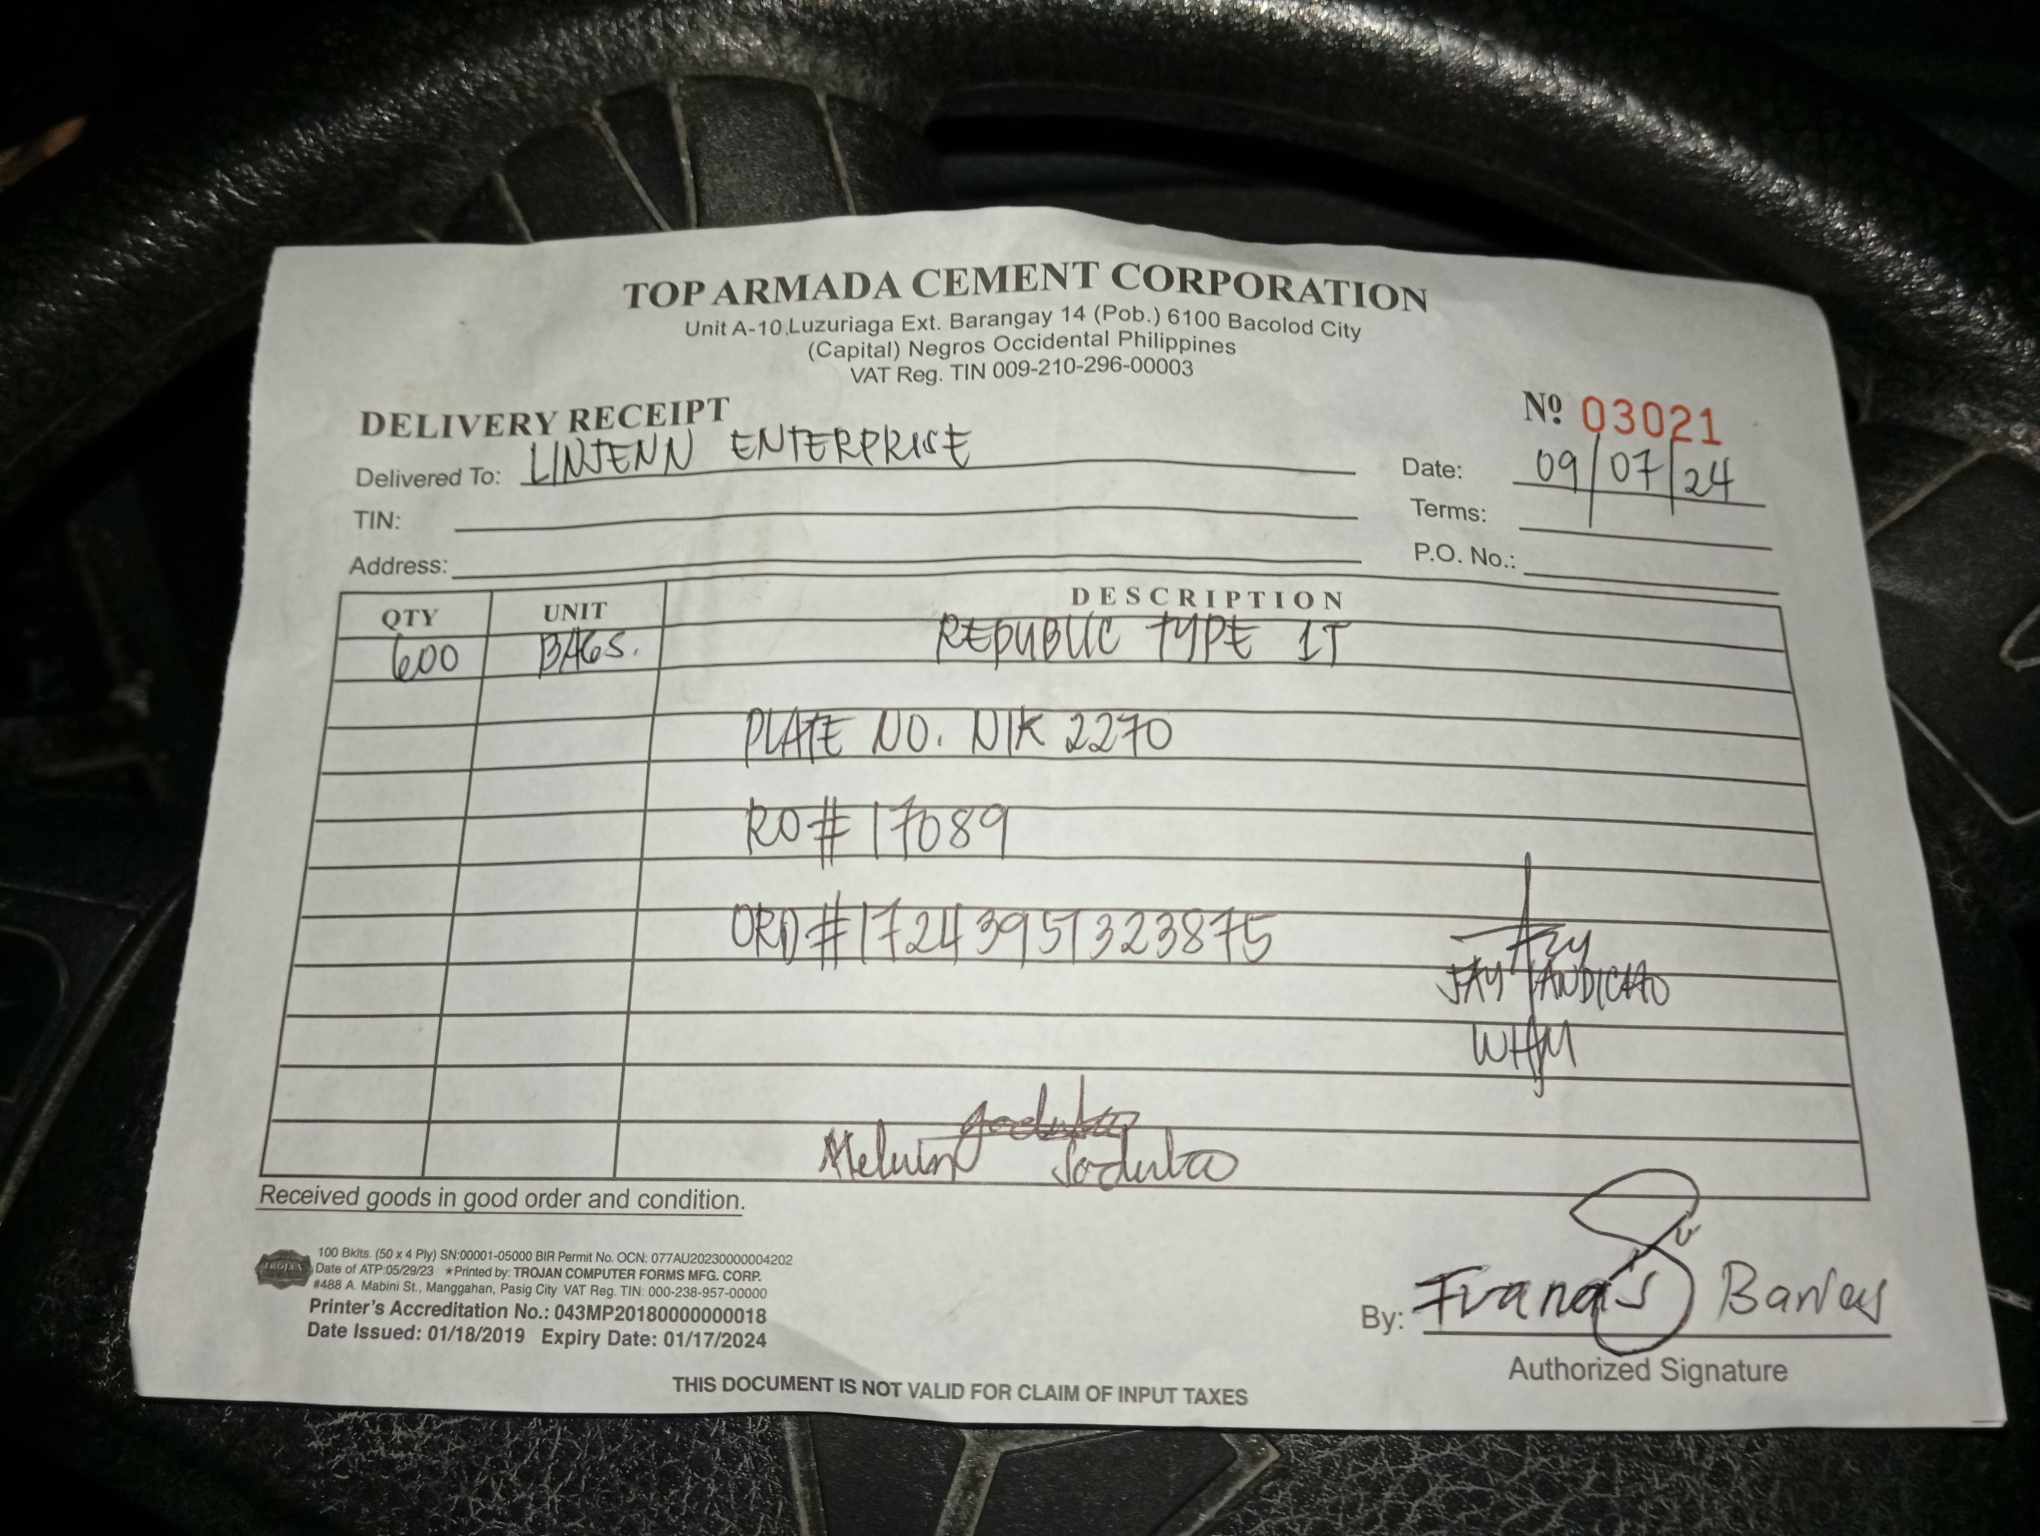 TOP ARMADA CEMENT CORPORATION
Unit A-10,Luzuriaga Ext. Barangay 14 (Pob.) 6100 Bacolod City
(Capital) Negros Occidental Philippines
VAT Reg. TIN 009-210-296-00003
DELIVERY RECEIPT Nº 03021
Delivered To: LINJENN ENTERPRISE Date: 09/07/24
TIN: Terms:
Address: P.O. No.:
QTY UNIT DESCRIPTION
600 BAGS. REPUBLIC TYPE 1T
PLATE NO. NIK 2270
RO# 17089
ORD# 17243951323875
JAY TANDICHO
WHM
Melvin
Received goods in good order and condition.
100 Bklts. (50 x 4 Ply) SN:00001-05000 BIR Permit No. OCN: 077AU20230000004202
TROJAN Date of ATP:05/29/23 *Printed by: TROJAN COMPUTER FORMS MFG. CORP.
#488 A. Mabini St., Manggahan, Pasig City VAT Reg. TIN: 000-238-957-00000
Printer's Accreditation No.: 043MP20180000000018
Date Issued: 01/18/2019 Expiry Date: 01/17/2024
By: Francis
Authorized Signature
THIS DOCUMENT IS NOT VALID FOR CLAIM OF INPUT TAXES